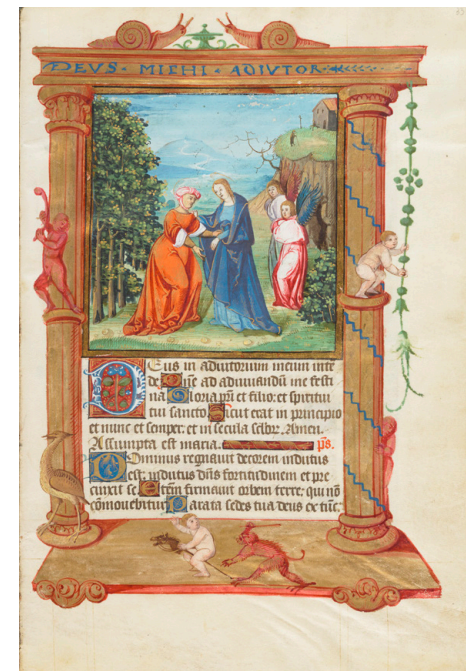 DEVS · MIEHI · ADIVTOR
Deus in adiutorium meum inte
de Dñe ad adiuuandũ me festi
na Gloria pr̃i et filio: et spiritui
tui sancto Sicut erat in principio
et nunc et semper: et in secula seclor̃. Amen.
Assumpta est maria. p̃s.
Dominus regnauit decorem indutus
est: indutus dñs fortitudinem et pre
cinxit se. Etem̃ firmauit orbem terre: qui nõ
cõmouebitur Parata sedes tua deus ex tũc.